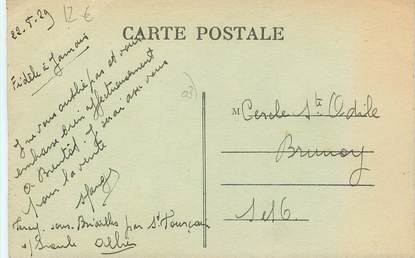 22.5.29
12 €
CARTE POSTALE
Fidèle à Jamais
Je ne vous oublie pas et vous
embrasse bien affectueusement
à Bientôt. J'irai avec vous
pour la vente
M Cercle Ste Odile
Brunoy
S et O.
par St Pourçain
Allier